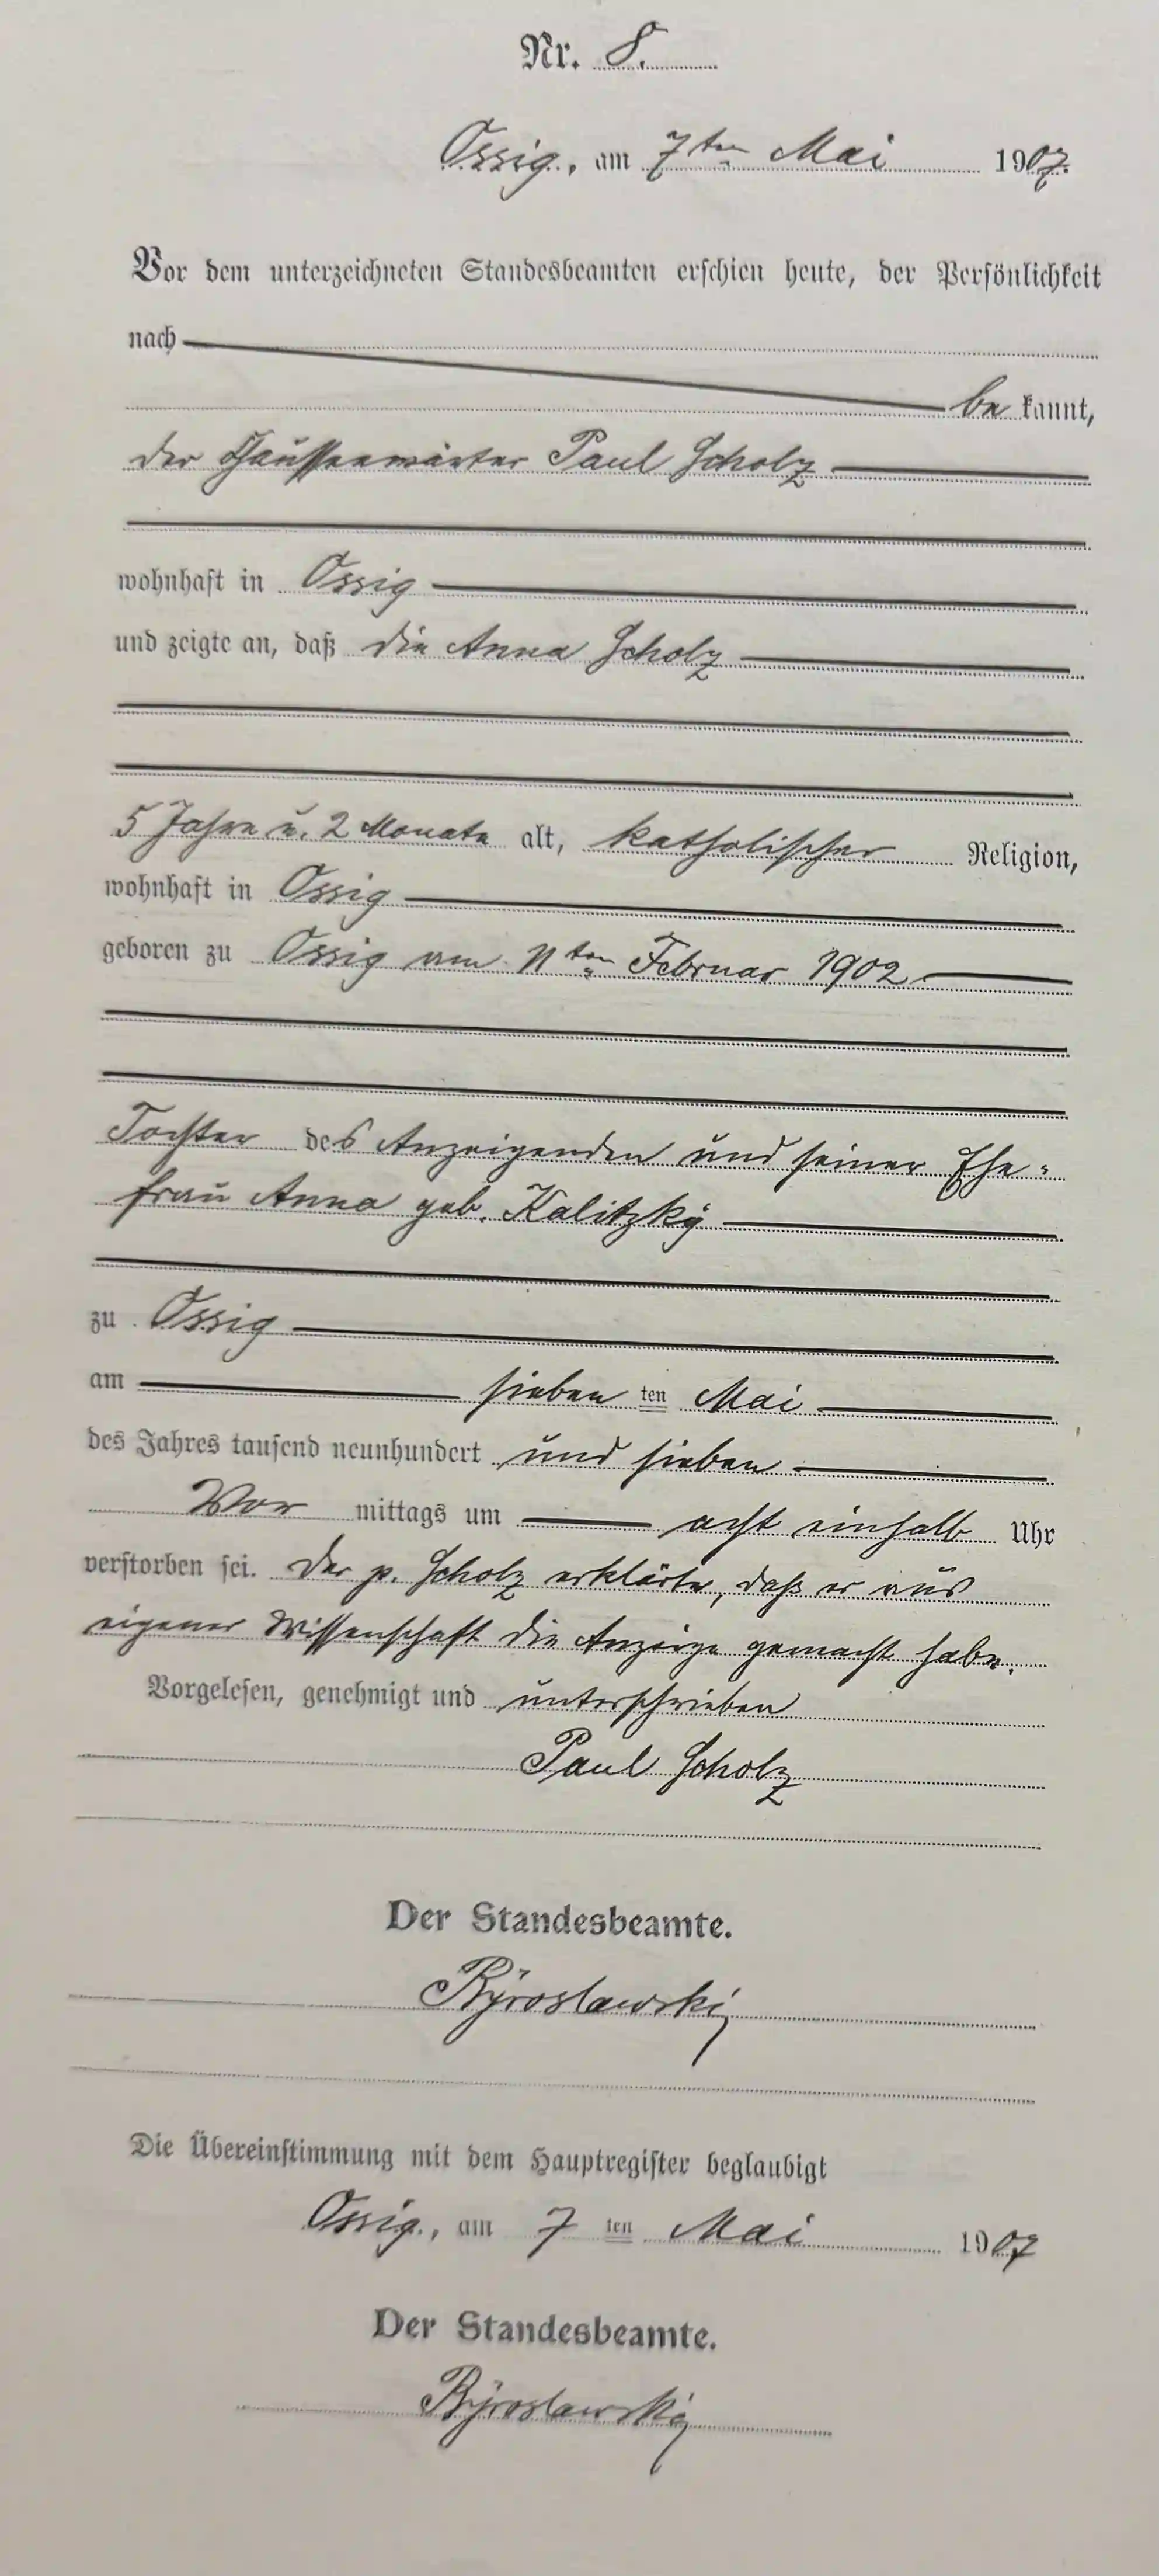 Nr. 8.
Ossig, am 7ten Mai 1907.
Vor dem unterzeichneten Standesbeamten erschien heute, der Persönlichkeit
nach
be kannt,
der Chausseewärter Paul Scholz
wohnhaft in Ossig
und zeigte an, daß die Anna Scholz
5 Jahre u. 2 Monate alt, katholischer Religion,
wohnhaft in Ossig
geboren zu Ossig am 11ten Februar 1902
Tochter des Anzeigenden und seiner Ehe-
frau Anna geb. Kalitzky
zu Ossig
am sieben ten Mai
des Jahres tausend neunhundert und sieben
Vor mittags um acht einhalb Uhr
verstorben sei. Der p. Scholz erklärte, daß er aus
eigener Wissenschaft die Anzeige gemacht habe.
Vorgelesen, genehmigt und unterschrieben
Paul Scholz
Der Standesbeamte.
Die Übereinstimmung mit dem Hauptregister beglaubigt
Ossig, am 7 ten Mai 1907
Der Standesbeamte.